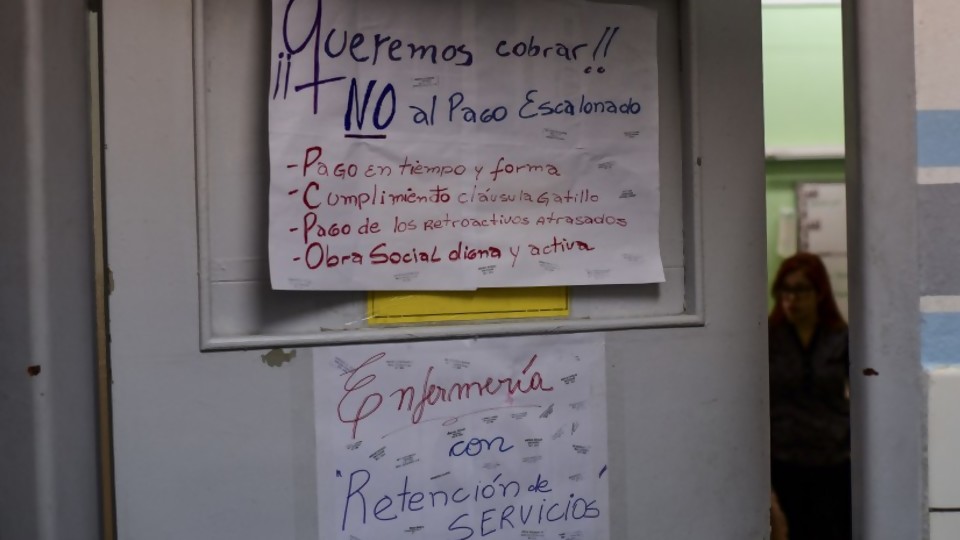 ¡¡Queremos cobrar!!
NO al Pago Escalonado
- Pago en tiempo y forma
- Cumplimiento cláusula Gatillo
- Pago de los Retroactivos Atrasados
- Obra Social digna y activa
Enfermería
con
"Retención de
SERVICIOS"